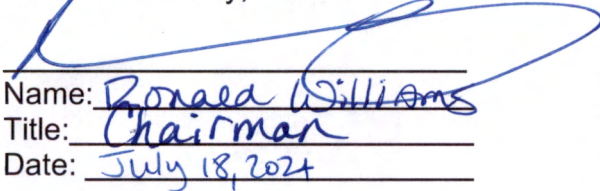 Name: Ronald Williams
Title: Chairman
Date: July 18, 2024